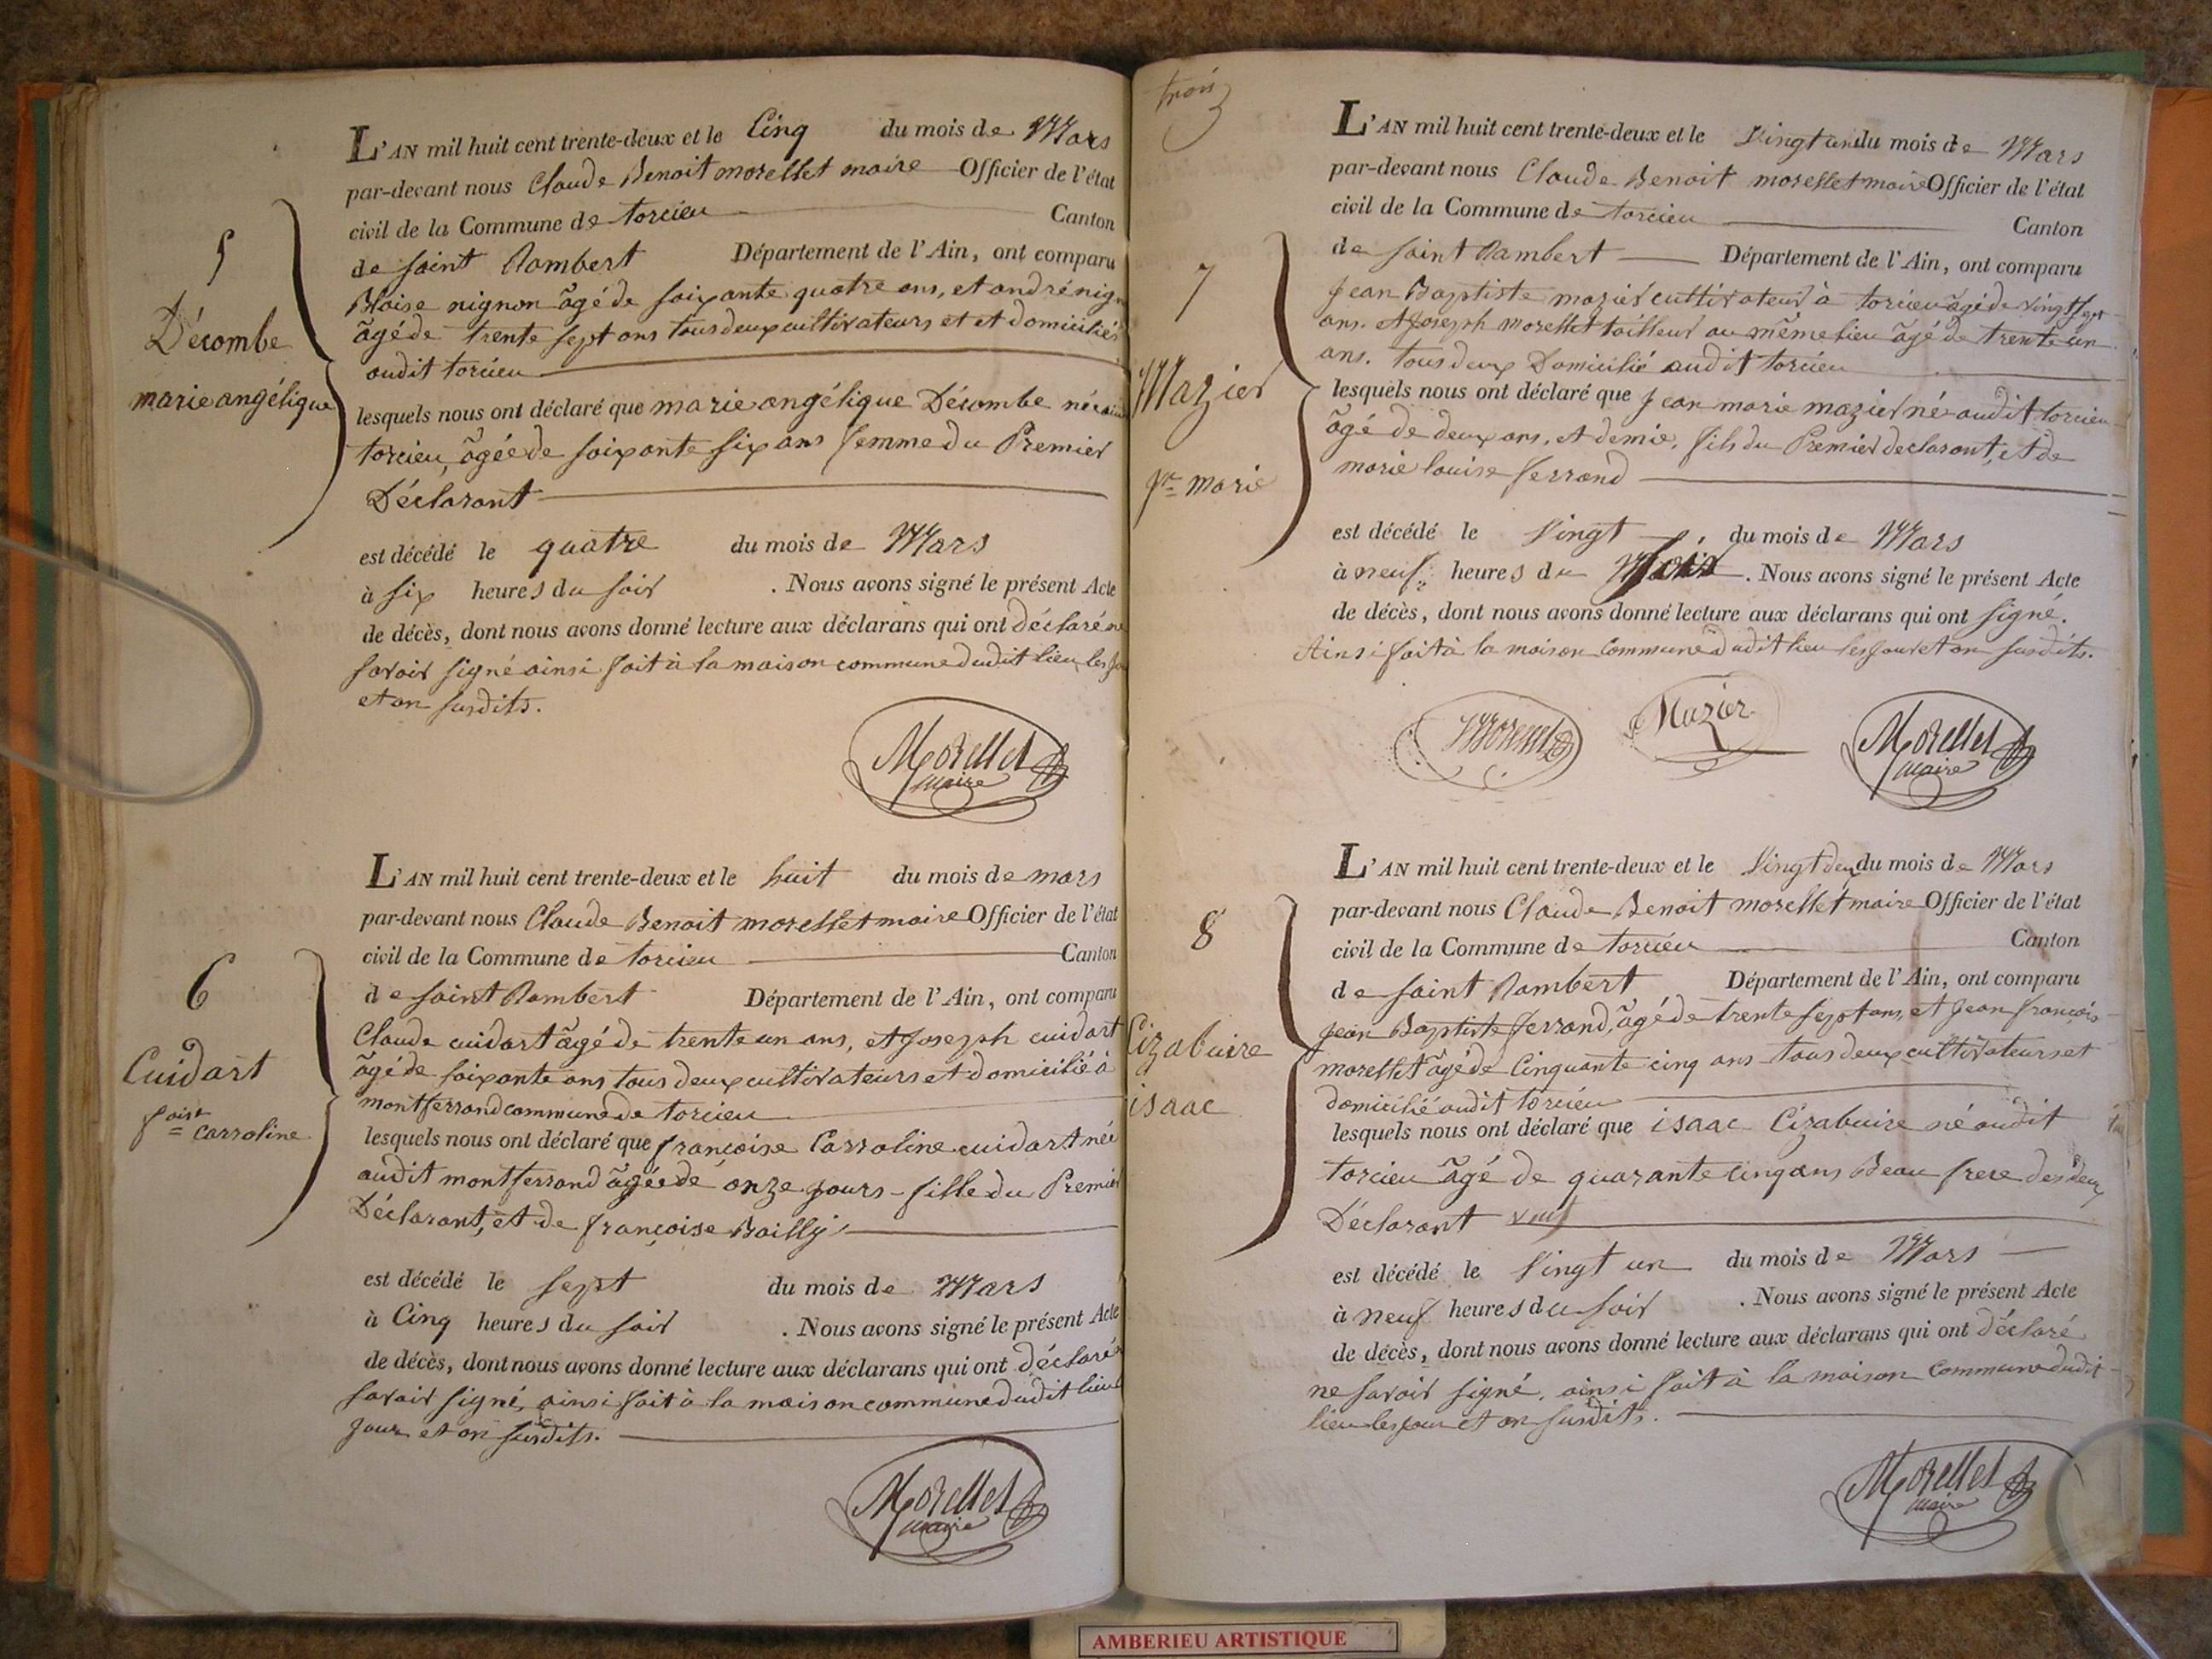 5
Décombe
marie angélique
L'AN mil huit cent trente-deux et le Cinq du mois de Mars
par-devant nous Claude Benoit morellet maire Officier de l'état
civil de la Commune de torcieu Canton
de saint Rambert Département de l'Ain, ont comparu
Blaise nignon âgé de soixante quatre ans, et andré
âgé de trente sept ans tous deux cultivateurs et et domiciliés
audit torcieu
lesquels nous ont déclaré que marie angélique Décombe
torcieu, âgée de soixante six ans femme du Premier
Déclarant
est décédé le quatre du mois de Mars
à six heures du soir . Nous avons signé le présent Acte
de décès, dont nous avons donné lecture aux déclarans qui ont déclaré ne
savoir signé ainsi fait à la maison commune dudit lieu les
et an susdits.
Morellet
maire
6
Cuidart
foise carroline
L'AN mil huit cent trente-deux et le huit du mois de mars
par-devant nous Claude Benoit morellet maire Officier de l'état
civil de la Commune de torcieu Canton
de saint Rambert Département de l'Ain, ont comparu
Claude cuidart âgé de trente un ans, et Joseph cuidart
âgé de soixante ans tous deux cultivateurs et domicilié à
montferrand commune de torcieu
lesquels nous ont déclaré que françoise Carroline cuidart née
audit montferrand âgée de onze jours - fille du Premier
Déclarant, et de françoise Bailly
est décédé le sept du mois de Mars
à Cinq heures du soir . Nous avons signé le présent Acte
de décès, dont nous avons donné lecture aux déclarans qui ont déclaré
savoir signé, ainsi fait à la maison commune dudit lieu
jour et an susdits.
Morellet
maire
trois
3
7
Mazier
Jn marie
L'AN mil huit cent trente-deux et le Vingt un du mois de Mars
par-devant nous Claude Benoit morellet maire Officier de l'état
civil de la Commune de torcieu Canton
de saint Rambert Département de l'Ain, ont comparu
Jean Baptiste mazier cultivateur à torcieu âgé de vingt sept
ans. et Joseph morellet tailleur au même lieu âgé de trente un
ans. tous deux Domicilié audit torcieu
lesquels nous ont déclaré que Jean marie mazier né audit torcieu
âgé de deux ans, et demie. fils du Premier declarant, et de
marie louise ferrand
est décédé le Vingt du mois de Mars
à neuf heures du . Nous avons signé le présent Acte
de décès, dont nous avons donné lecture aux déclarans qui ont signé.
Ainsi fait à la maison Commune dudit lieu les jour et an susdits.
Morellet
Mazier
Morellet
maire
8
Cizabuire
isaac
L'AN mil huit cent trente-deux et le Vingt deux du mois de Mars
par-devant nous Claude Benoit morellet maire Officier de l'état
civil de la Commune de torcieu Canton
de saint Rambert Département de l'Ain, ont comparu
Jean Baptiste ferrand, âgé de trente sept ans, et Jean françois
morellet âgé de Cinquante cinq ans tous deux cultivateurs et
domicilié audit torcieu
lesquels nous ont déclaré que isaac Cizabuire né audit
torcieu âgé de quarante cinq ans Beau frere des deux
Déclarant
est décédé le Vingt un du mois de Mars
à neuf heures du soir . Nous avons signé le présent Acte
de décès, dont nous avons donné lecture aux déclarans qui ont déclaré
ne savoir signé. ainsi fait à la maison Commune dudit
lieu les jour et an susdits.
Morellet
maire
AMBERIEU ARTISTIQUE